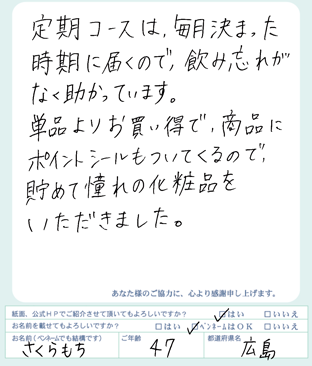 定期コースは、毎月決まった
時期に届くので、飲み忘れが
なく助かっています。
単品よりお買い得で、商品に
ポイントシールもついてくるので、
貯めて憧れの化粧品を
いただきました。
あなた様のご協力に、心より感謝申し上げます。
紙面、公式HPでご紹介させて頂いてもよろしいですか? ☑はい □いいえ
お名前を載せてもよろしいですか? □はい ☑ペンネームはOK □いいえ
お名前(ペンネームでも結構です) ご年齢 都道府県名
さくらもち 47 広島